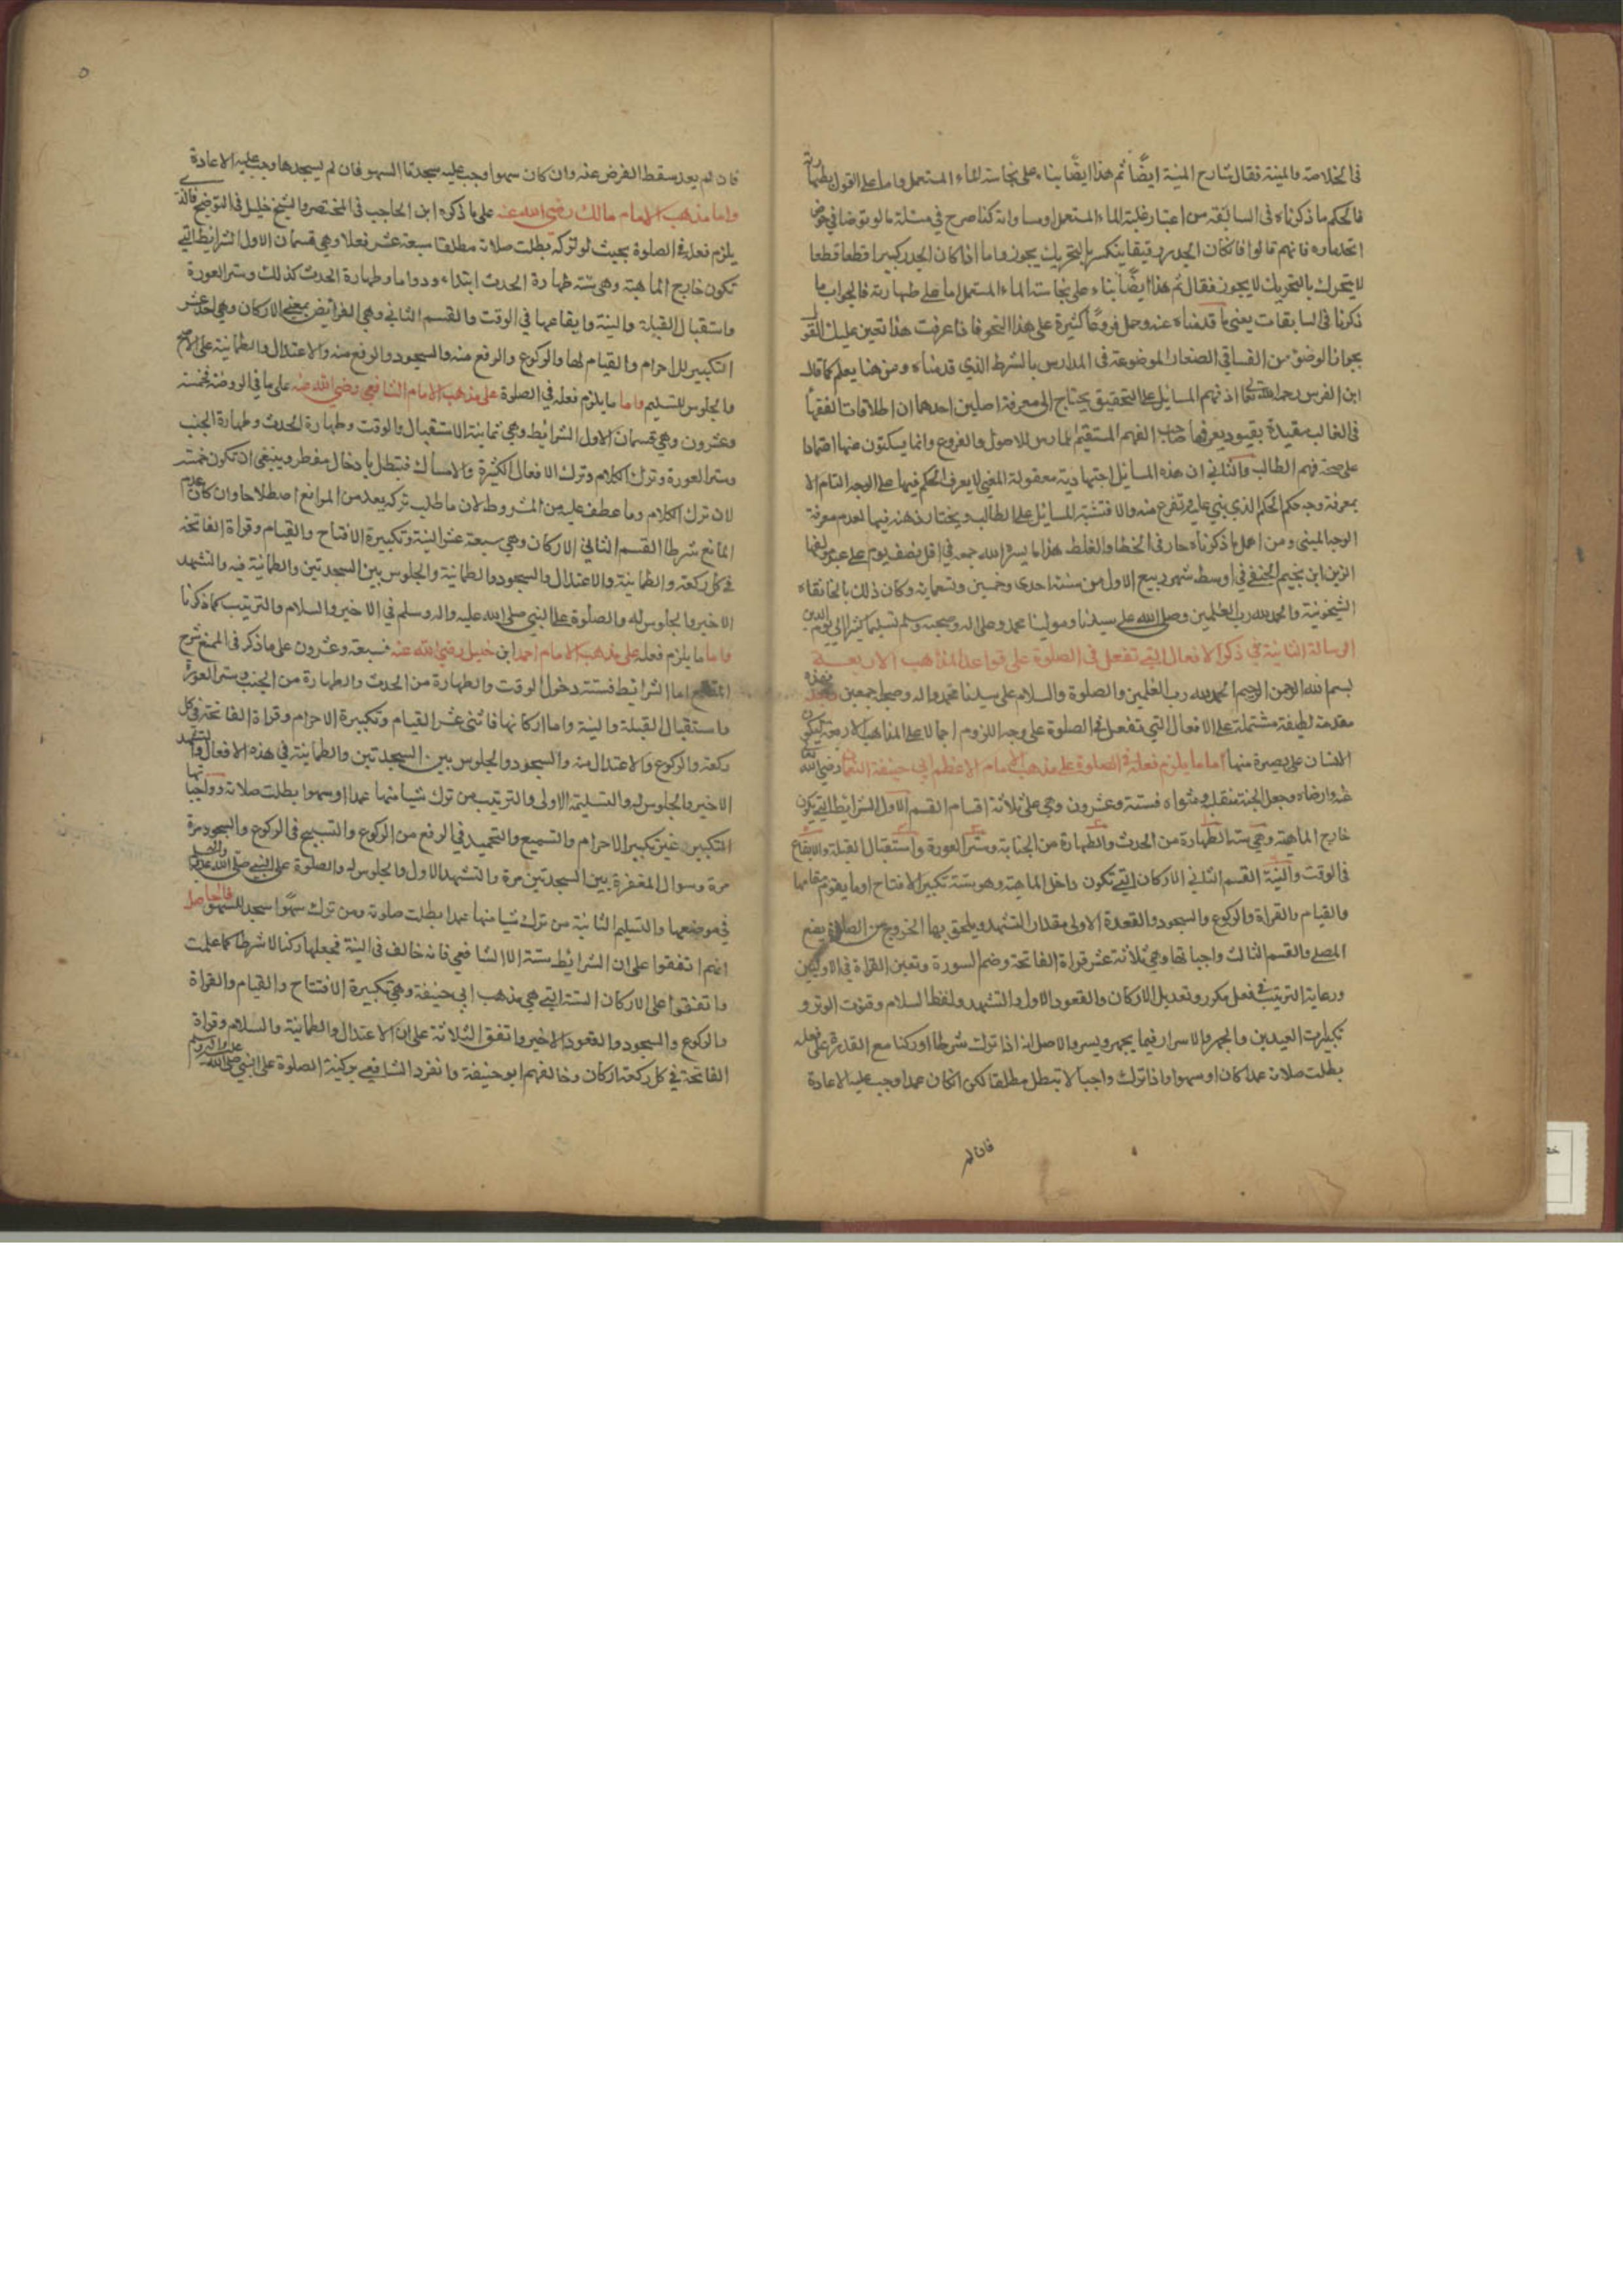 في الخلاصة والمنية فقال شارح المنية ايضًا ثم هذا ايضًا بناء على نجاسة الماء المستعمل واما على القول بطهارته
فالحكم ما ذكرناه في السابقة من اعتبار غلبة الماء المستعمل او مساواته كما صرح في مسئلة ما لو توضا في حوض
انجلماوه فانهم قالوا فان كان الجمد رقيقا ينكسر بالتحريك يجوز واما اذا كان الجمد كبيرا قطعا قطعا
لا يتحرك بالتحريك لا يجوز فقال ثم هذا ايضًا بناء على نجاسة الماء المستعمل اما على طهارته فالجواب ما
ذكرنا في السابقات يعني ما قدمناه عنه وحمل فروعًا كثيرة على هذا النحو فاذا عرفت هذا تعين عليك القول
بجواز الوضوء من الفساقي الصغار الموضوعة في المدارس بالشرط الذي قدمناه ومن هنا يعلم كما قال
ابن الغرس رحمه الله تعالى اذ فهم المسايل على التحقيق يحتاج الى معرفة اصلين احدهما ان اطلاقات الفقها
في الغالب مقيدة بقيود يعرفها صاحب الفهم المستقيم الممارس للاصول والفروع وانما يسكتون عنها اعتمادا
على صحة فهم الطالب والثاني ان هذه المسايل اجتهادية معقولة المعنى لا يعرف الحكم فيها على الوجه التام الا
بمعرفة وجه حكم الحكم الذي بني عليه وتفرع منه والا فتشتبه المسايل على الطالب ويحتار ذهنه فيها لعدم معرفة
الوجه المبنى ومن اهمل ما ذكرناه حار في الخطا والغلط هذا ما يسره الله جمعه في اقل من نصف يوم على يد مولفها
الزين ابن نجيم الحنفي في اوسط شهر ربيع الاول من سنة احدى وخمسين وتسعماية وكان ذلك بالخانقاه
الشيخونية والحمد لله رب العلمين وصلى الله على سيدنا ومولينا محمد وعلى اله وصحبه وسلم تسليما كثيرا الى يوم الدين
الرسالة الثانية في ذكر الافعال التي تفعل في الصلوة على قواعد المذاهب الاربعة
بسم الله الرحمن الرحيم الحمد لله رب العلمين والصلوة والسلام على سيدنا محمد واله وصحبه اجمعين وبعد فهذه
مقدمة لطيفة مشتملة على الافعال التي تفعل في الصلوة على وجه اللزوم اجمالا على المذاهب الاربعة ليكون
الانسان على بصيرة منها اما ما يلزم فعله في الصلوة على مذهب الامام الاعظم ابي حنيفة النعمان رضي الله تعالى
عنه وارضاه وجعل الجنة منقلبه ومثواه فستة وعشرون وهي على ثلاثة اقسام القسم الاول الشرايط التي تكون
خارج الماهية وهي ستة الطهارة من الحدث والطهارة من الجنابة وستر العورة واستقبال القبلة والايقاع
في الوقت والنية القسم الثاني الاركان التي تكون داخل الماهية وهو ستة تكبير الافتتاح او ما يقوم مقامها
والقيام والقراة والركوع والسجود والقعدة الاولى مقدار التشهد ويلحق بها الخروج من الصلوة بصنع
المصلي والقسم الثالث واجباتها وهي ثلاثة عشر قراة الفاتحة وضم السورة وتعين القراة في الاوليين
ورعاية الترتيب في فعل مكرر وتعديل الاركان والقعود الاول والتشهد ولفظ السلام وقنوت الوتر و
تكبيرات العيدين والجهر والاسرار فيما يجهر ويسر والاصل انه اذا ترك شرطا او ركنا مع القدرة على فعله
بطلت صلاته عمدا كان او سهوا واذا ترك واجبا لا تبطل مطلقا لكن ان كان عمدا وجب عليه الاعادة
فان لم
٥
فان لم يعد سقط الفرض عنه وان كان سهوا وجب عليه سجدتا السهو فان لم يسجدها وجب عليه الاعادة
واما مذهب الامام مالك رضي الله عنه على ما ذكره ابن الحاجب في المختصر والشيخ خليل في التوضيح فالذي
يلزم فعله في الصلوة بحيث لو تركه بطلت صلاته مطلقا سبعة عشر فعلا وهي قسمان الاول الشرايط التي
تكون خارج الماهية وهي ستة طهارة الحدث ابتداء ودواما وطهارة الحدث كذلك وستر العورة
واستقبال القبلة والنية وايقاعها في الوقت والقسم الثاني وهي الفرائض بمعنى الاركان وهي احد عشر
التكبير للاحرام والقيام لها والركوع والرفع منه والسجود والرفع منه والاعتدال والطمانية على الاصح
والجلوس للتسليم واما ما يلزم فعله في الصلوة على مذهب الامام الشافعي رضي الله عنه على ما في الروضة فخمسة
وعشرون وهي قسمان الاول الشرايط وهي ثمانية الاستقبال والوقت وطهارة الحدث وطهارة الجنب
وستر العورة وترك الكلام وترك الافعال الكثيرة والامساك فتبطل بادخال مفطر وينبغي ان تكون خمسة
لان ترك الكلام وما عطف عليه من الشروط لان ما طلب تركه يعد من الموانع اصطلاحا وان كان عدم
المانع شرطا القسم الثاني الاركان وهي سبعة عشر النية وتكبيرة الافتتاح والقيام وقراة الفاتحة
في كل ركعة والطمانية والاعتدال والسجود والطمانية والجلوس بين السجدتين والطمانية فيه والتشهد
الاخير والجلوس له والصلوة على النبي صلى الله عليه واله وسلم في الاخير والسلام والترتيب كما ذكرنا
واما ما يلزم فعله على مذهب الامام احمد ابن حنبل رضي الله عنه فسبعة وعشرون على ما ذكر في الممتع شرح
المقنع اما الشرايط فستة دخول الوقت والطهارة من الحدث والطهارة من الجنب وستر العورة
واستقبال القبلة والنية واما اركانها فاثنى عشر القيام وتكبيرة الاحرام وقراة الفاتحة في كل
ركعة والركوع والاعتدال منه والسجود والجلوس بين السجدتين والطمانية في هذه الافعال والتشهد
الاخير والجلوس له والتسليمة الاولى والترتيب من ترك شيا منها عمدا او سهوا بطلت صلاته وواجباتها
التكبير غير تكبير الاحرام والتسميع والتحميد في الرفع من الركوع والتسبيح في الركوع والسجود مرة
مرة وسوال المغفرة بين السجدتين مرة والتشهد الاول والجلوس له والصلوة على النبي صلى الله عليه وسلم
في موضعها والتسليم الثانية من ترك شيا منها عمدا بطلت صلوته ومن ترك سهوا سجد للسهو فالحاصل
انهم اتفقوا على ان الشرائط ستة الا الشافعي فانه خالف في النية فجعلها ركنا لا شرطا كما علمت
واتفقوا على الاركان الستة التي هي مذهب ابي حنيفة وهي تكبيرة الافتتاح والقيام والقراة
والركوع والسجود والقعود الاخير واتفق الثلاثة على ان الاعتدال والطمانية والسلام وقراة
الفاتحة في كل ركعة اركان وخالفهم ابو حنيفة وانفرد الشافعي بركنية الصلوة على النبي صلى الله عليه واله وسلم